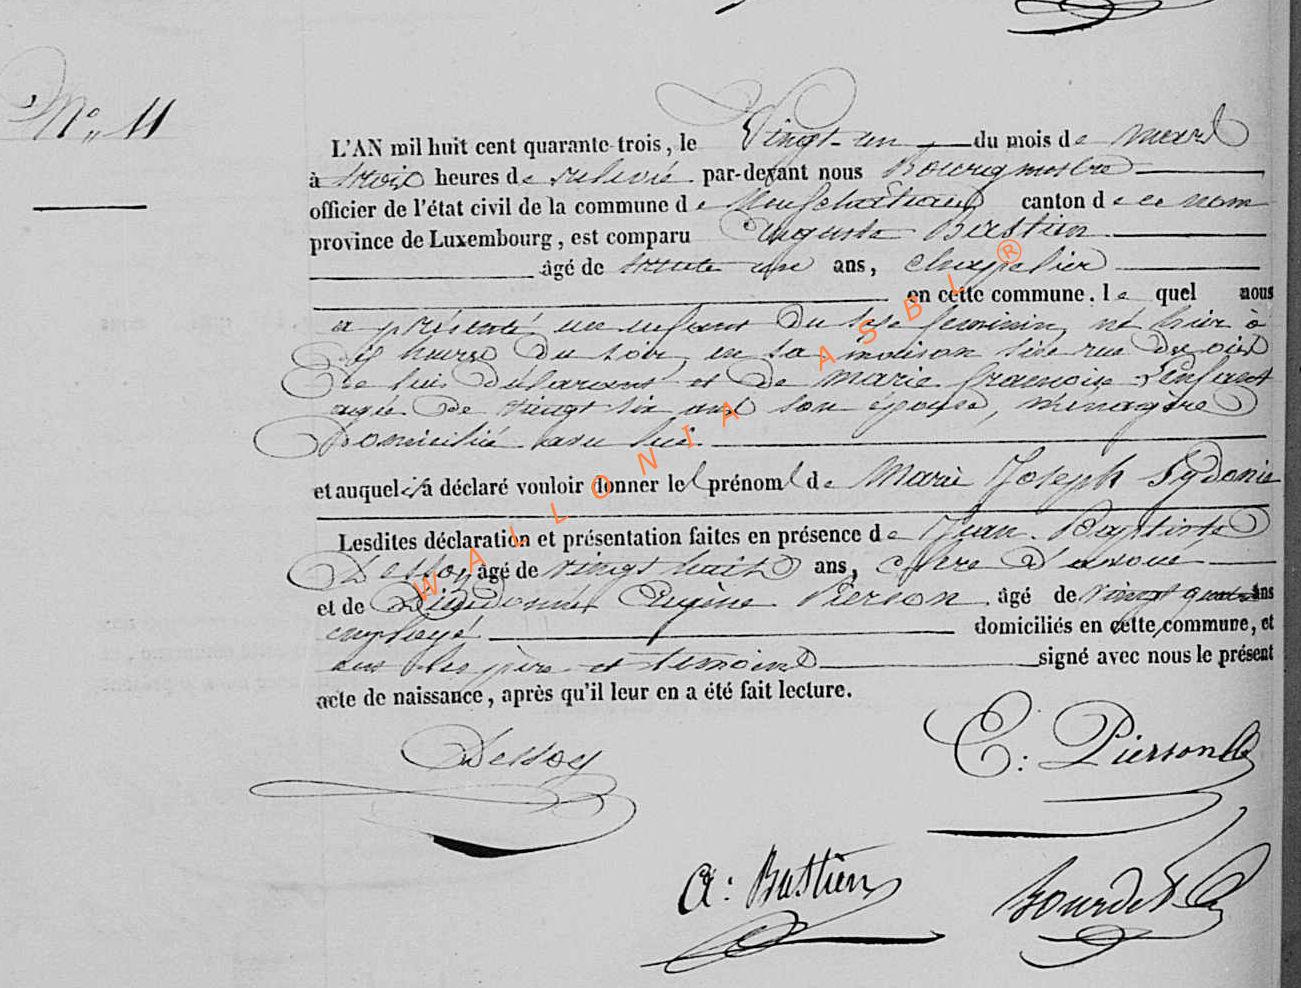 N° 11
L'AN mil huit cent quarante-trois, le Vingt-un du mois de mars
à trois heures de relevée par-devant nous Bourgmestre
officier de l'état civil de la commune de Neufchâteau canton de ce nom
province de Luxembourg, est comparu Auguste Bastien
âgé de trente un ans, chapelier
en cette commune, le quel nous
a présenté un enfant du sexe feminin, né hier à
heures du soir, en sa maison sise rue
de lui déclarant et de Marie françoise Lenfant
agée de vingt six ans son épouse, ménagère
Domiciliée avec lui.
et auquel il a déclaré vouloir donner les prénoms de Marie Joseph Sydonie
Lesdites déclaration et présentation faites en présence de Jean-Baptiste
Dessoy âgé de vingt huit ans, clerc d'avoué
et de Dieudonné Eugène Pierson âgé de vingt quatre ans
employé domiciliés en cette commune, et
ont les père et témoins signé avec nous le présent
acte de naissance, après qu'il leur en a été fait lecture.
Dessoy
E: Pierson
A: Bastien
Bourdet
WALLONIA ASBL ®